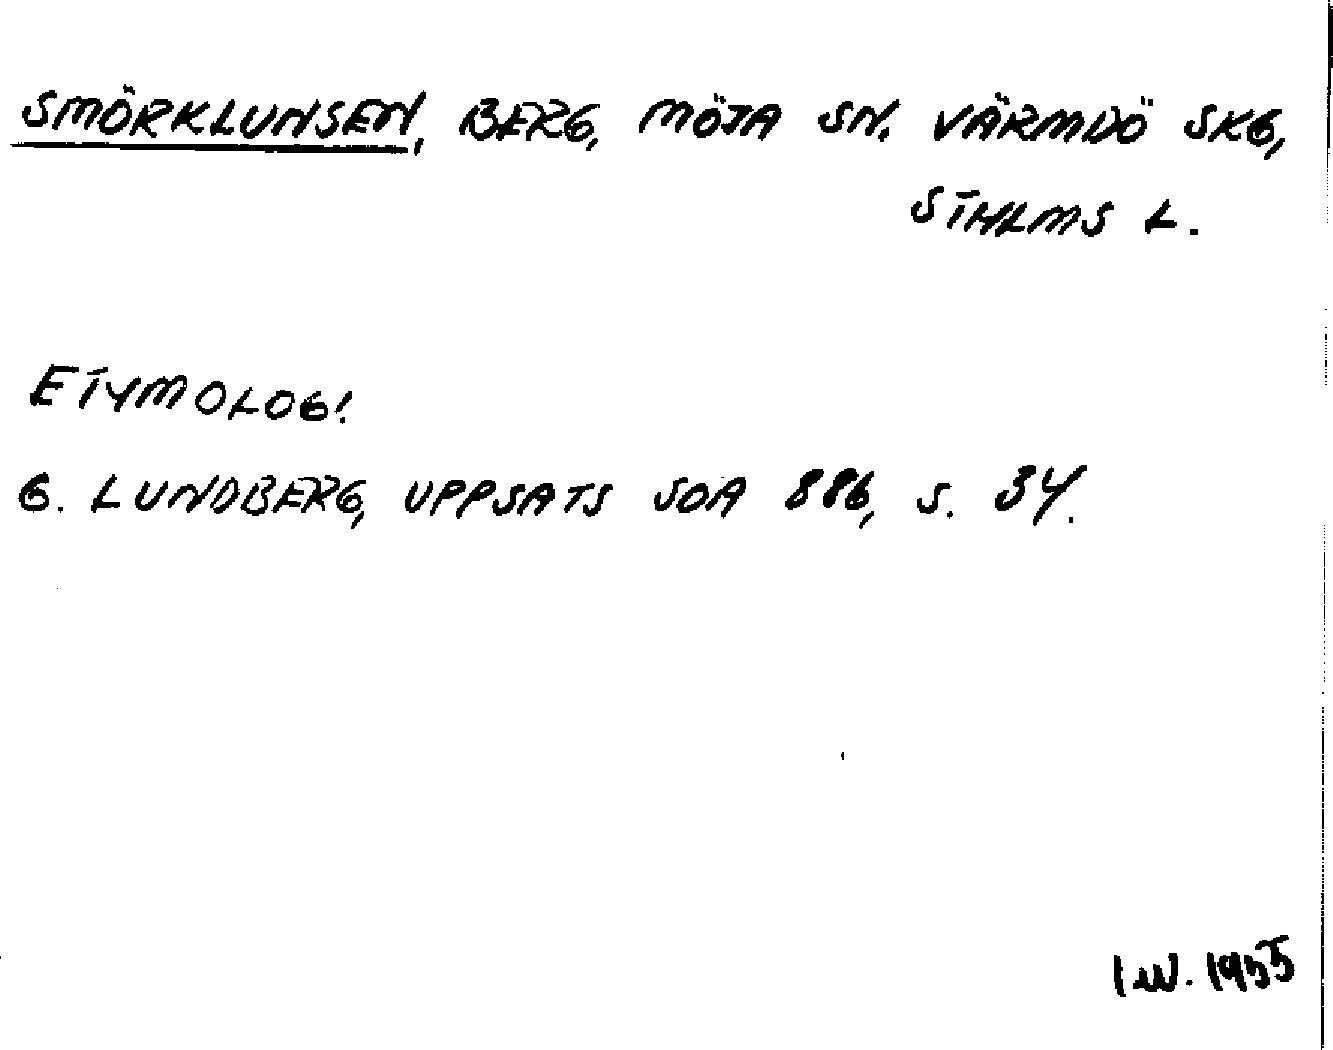 SMÖRKLUNSEN, BERG, MÖJA SN. VÄRMDÖ SKG,
STHLMS L.
ETYMOLOG!
G. LUNDBERG, UPPSATS SOA 886, S. 34.
I W. 1955